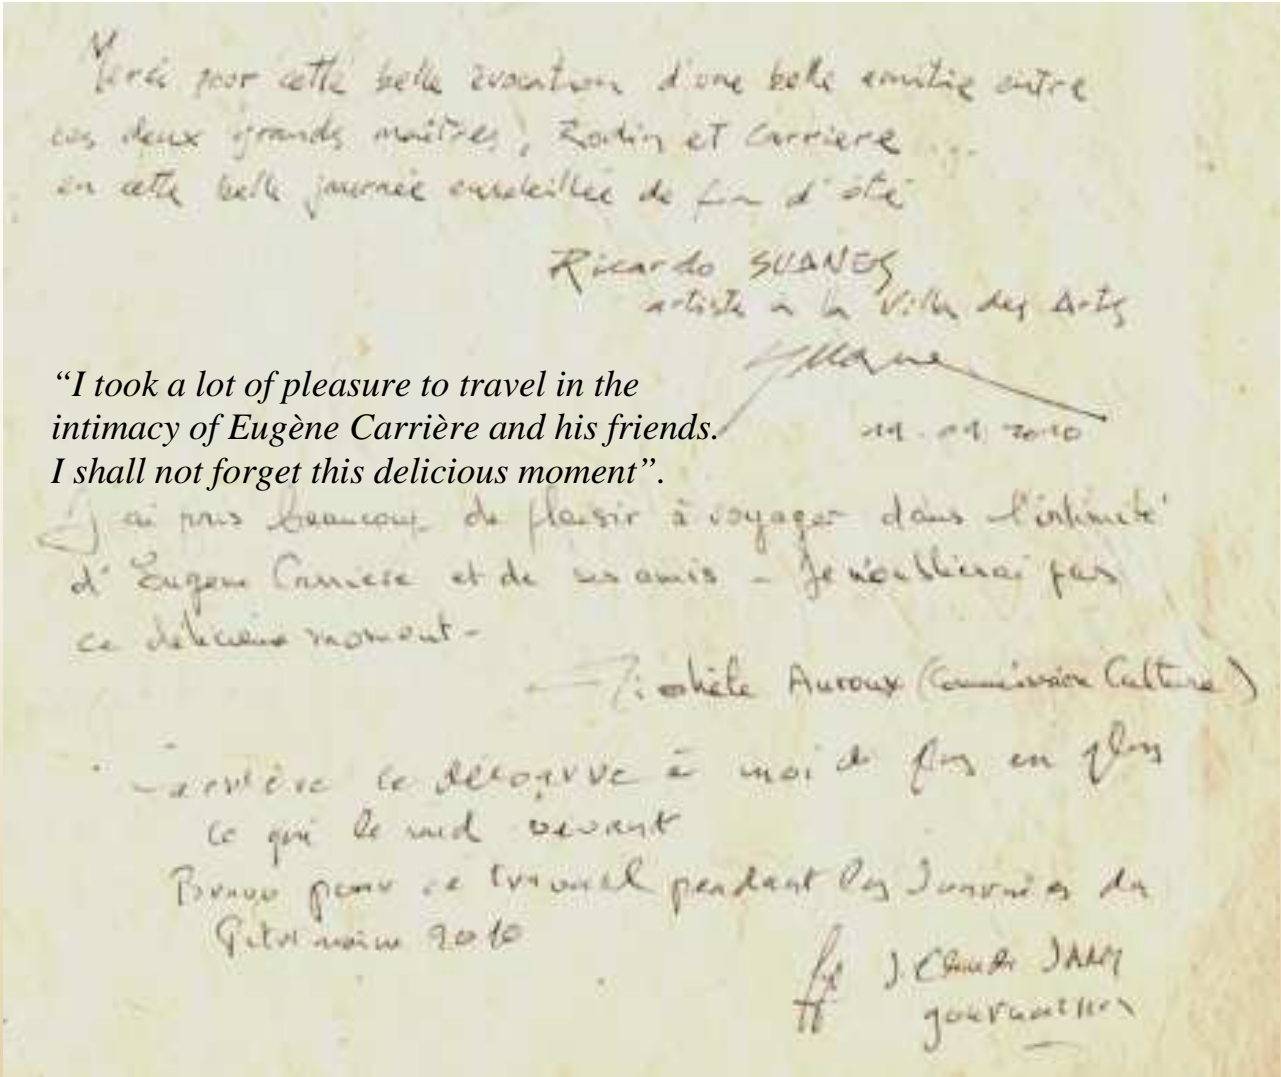 Merci pour cette belle évocation d'une belle amitié entre
ces deux grands maîtres, Rodin et Carriere ...
en cette belle journée ensoleillée de fin d'été
Ricardo SUANES
artiste à la Villa des Arts
“I took a lot of pleasure to travel in the
intimacy of Eugène Carrière and his friends.
I shall not forget this delicious moment”.
2010
J'ai pris beaucoup de plaisir à voyager dans l'intimité
d'Eugène Carrière et de ses amis - Je n'oublierai pas
ce délicieux moment -
Auroux (Commission Culture)
Carrière se découvre à moi de plus en plus
ce qui le rend vivant
Bravo pour ce travail pendant les Journées du
Patrimoine 2010
J Claude